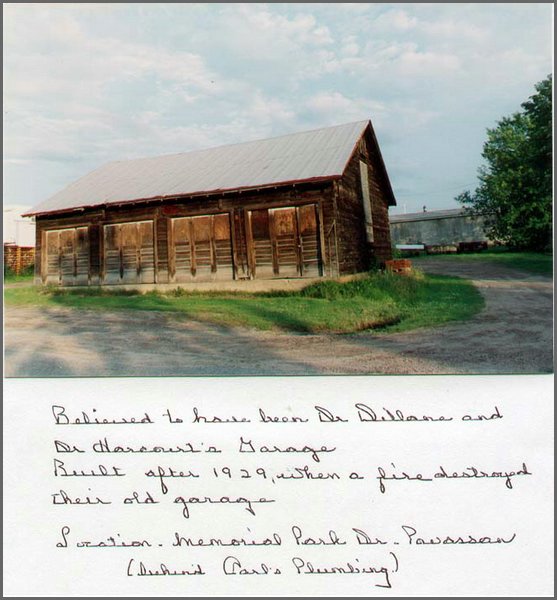 Believed to have been Dr Dillane and
Dr Harcourt's Garage
Built after 1929, when a fire destroyed
their old garage
Location - Memorial Park Dr - Powassan
(behind Carl's Plumbing)